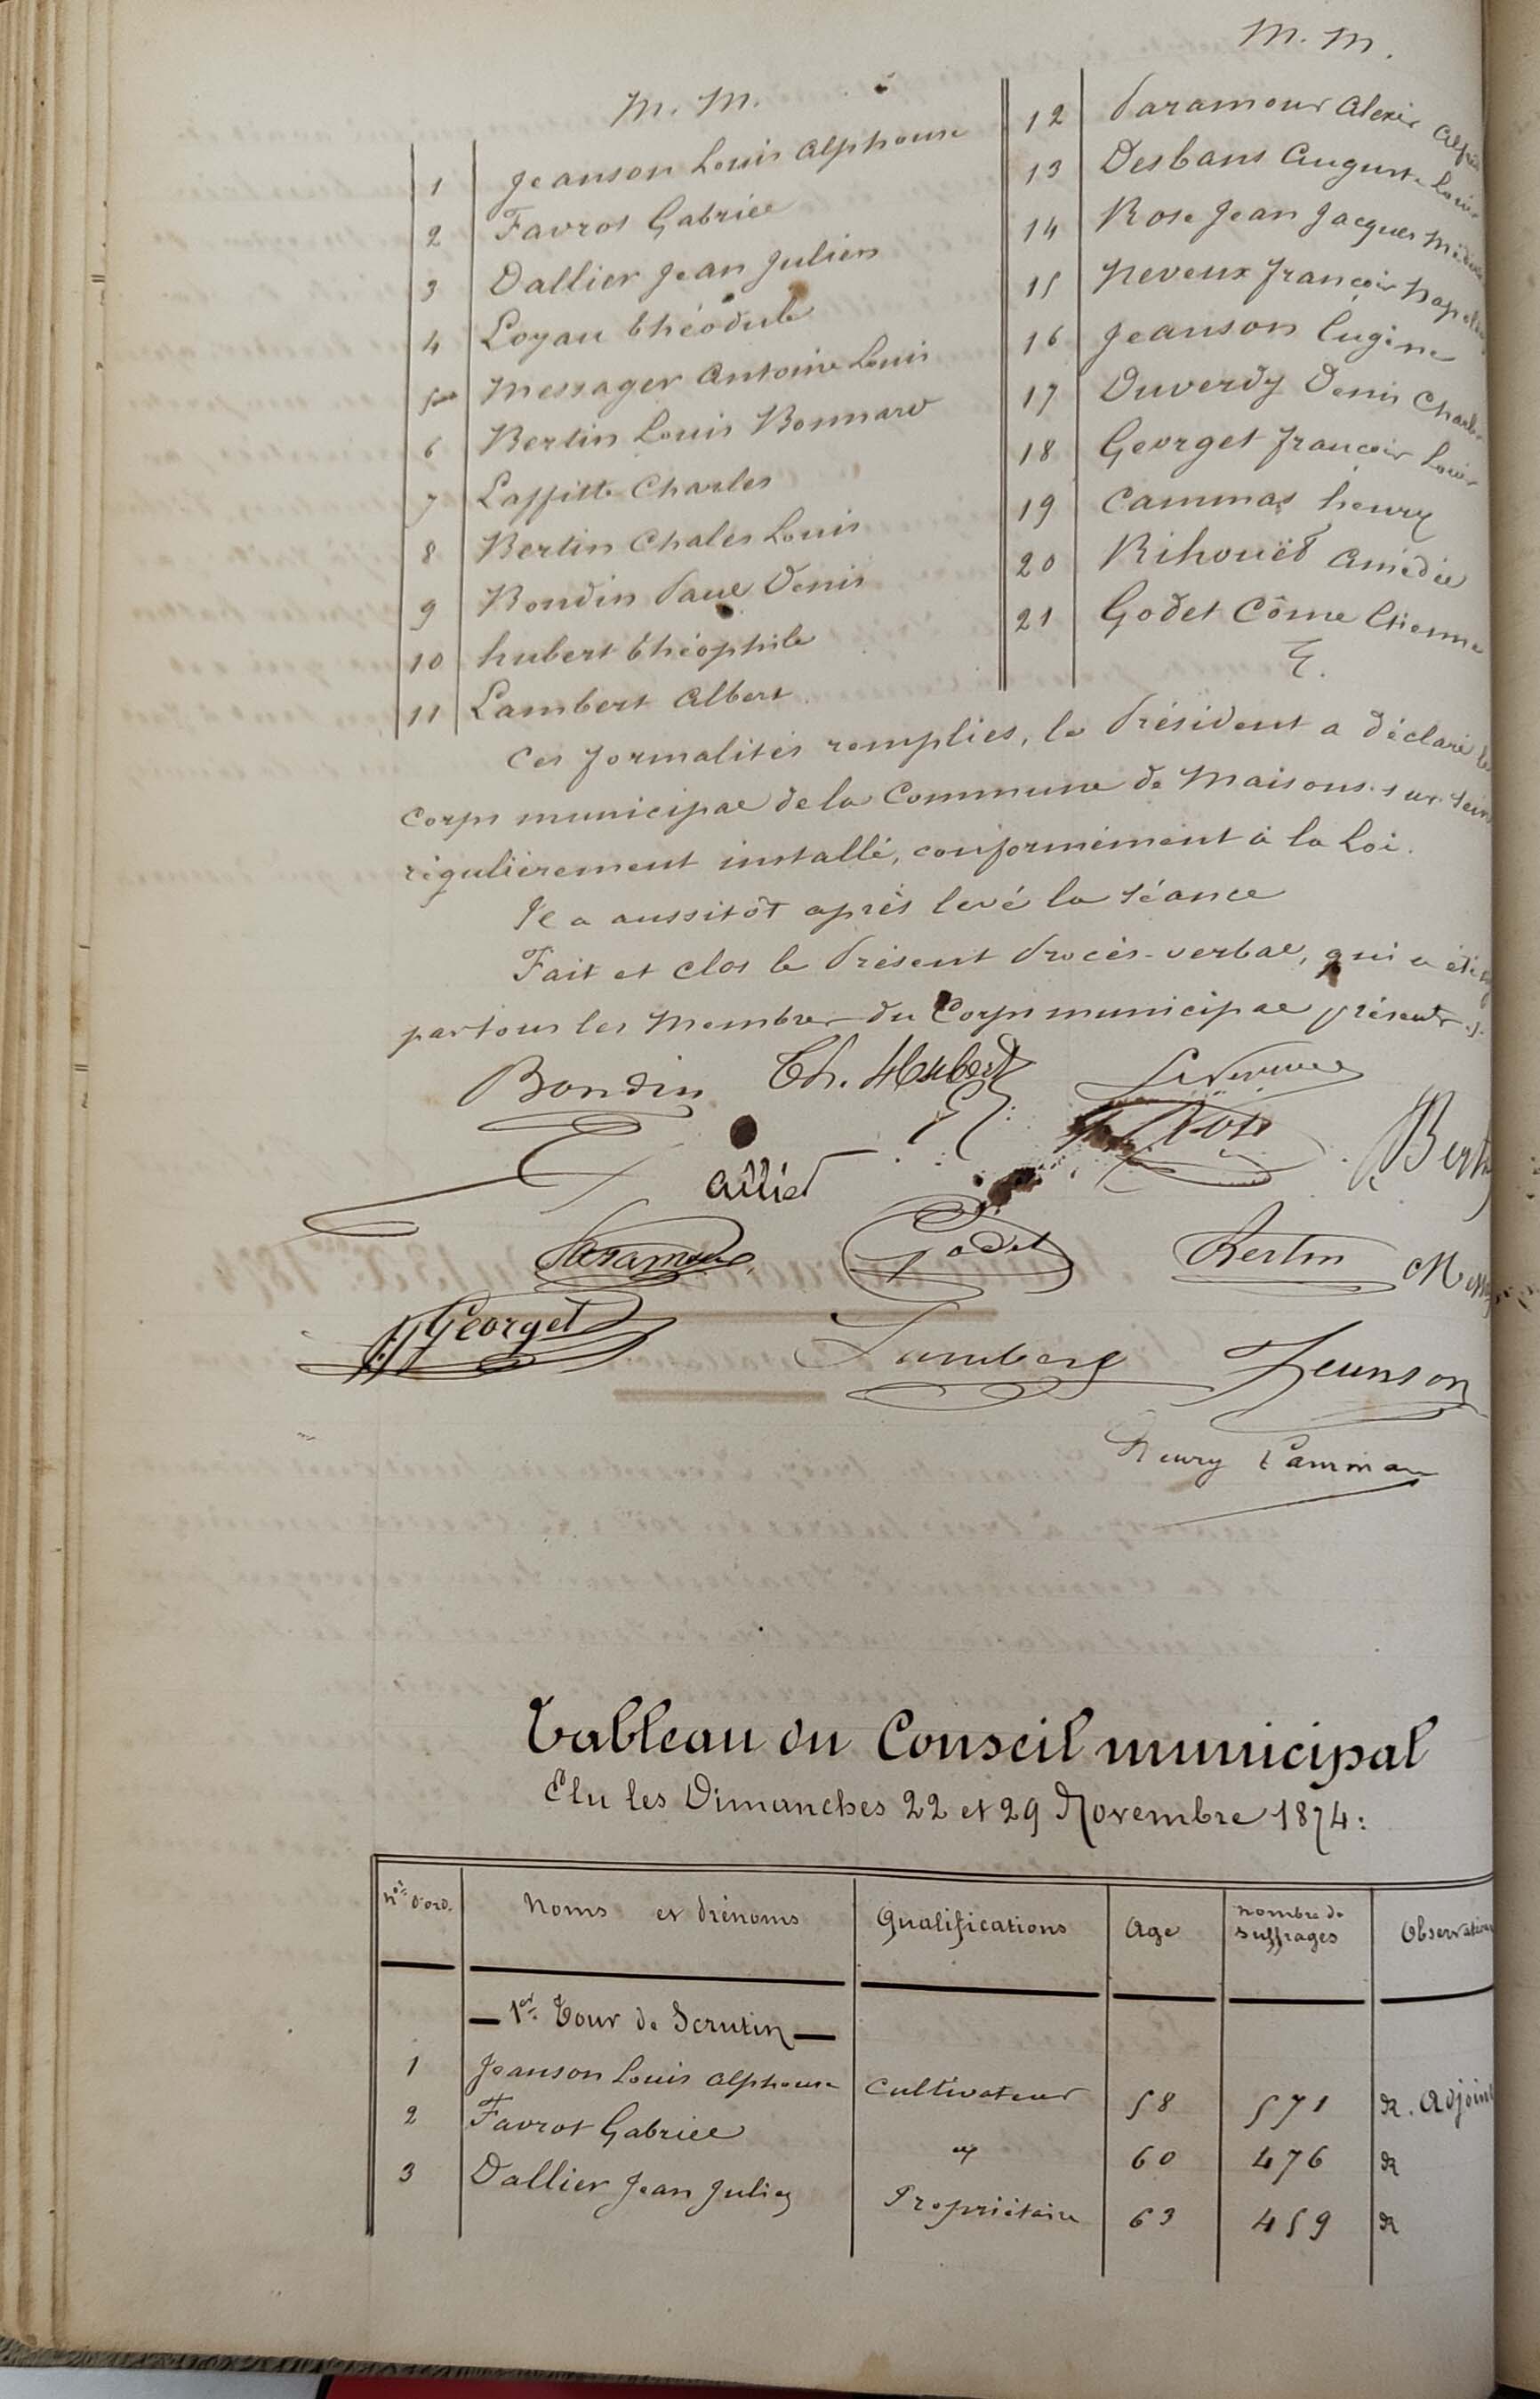 M. M.
1 Jeanson Louis Alphonse
2 Favrot Gabriel
3 Dallier Jean Julien
4 Loyau Théodule
5 Messager Antoine Louis
6 Bertin Louis Bonnard
7 Laffitte Charles
8 Bertin Chales Louis
9 Bondin Paul Denis
10 Hubert Théophile
11 Lambert Albert
M. M.
12 Paramour Alexis
13 Desbans Auguste Louis
14 Rose Jean Jacques
15 Neveux François
16 Jeanson Eugène
17 Duverdy Denis Charles
18 Georget François Louis
19 Cammas henry
20 Rihouët Amédée
21 Godet Côme Etienne
Ces formalités remplies, le Président a déclaré le
corps municipal de la Commune de Maisons-sur-Seine
régulièrement installé, conformément à la Loi.
Il a aussitôt après levé la séance
Fait et clos le Présent Procès-verbal, qui a été
par tous les Membres du Corps municipal présents.
Bondin Th. Hubert
Rose Bertin
allier
Paramour Godet Bertin
Georget Lambert Jeanson
Henry Cammas
Tableau du Conseil municipal
Elu les Dimanches 22 et 29 Novembre 1874:
Nos d'ord. Noms et Prénoms Qualifications Age Nombre de suffrages Observations
1er Tour de Scrutin
1 Jeanson Louis Alphonse Cultivateur 58 571 R. Adjoint
2 Favrot Gabriel 60 476 R
3 Dallier Jean Julien Propriétaire 63 459 R